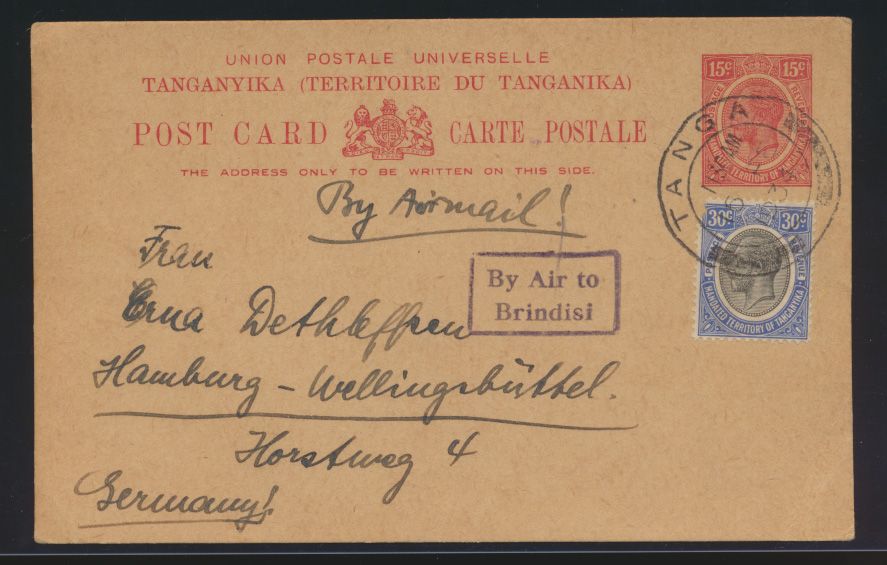 UNION POSTALE UNIVERSELLE
TANGANYIKA (TERRITOIRE DU TANGANIKA)
POST CARD CARTE POSTALE
THE ADDRESS ONLY TO BE WRITTEN ON THIS SIDE.
15c 15c
TERRITORY OF TANGANYIKA
TANGA
30c 30c
MANDATED TERRITORY OF TANGANYIKA
By Airmail!
By Air to
Brindisi
Frau
Erna Dethleffsen
Hamburg - Wellingsbüttel.
Horstweg 4
Germany!